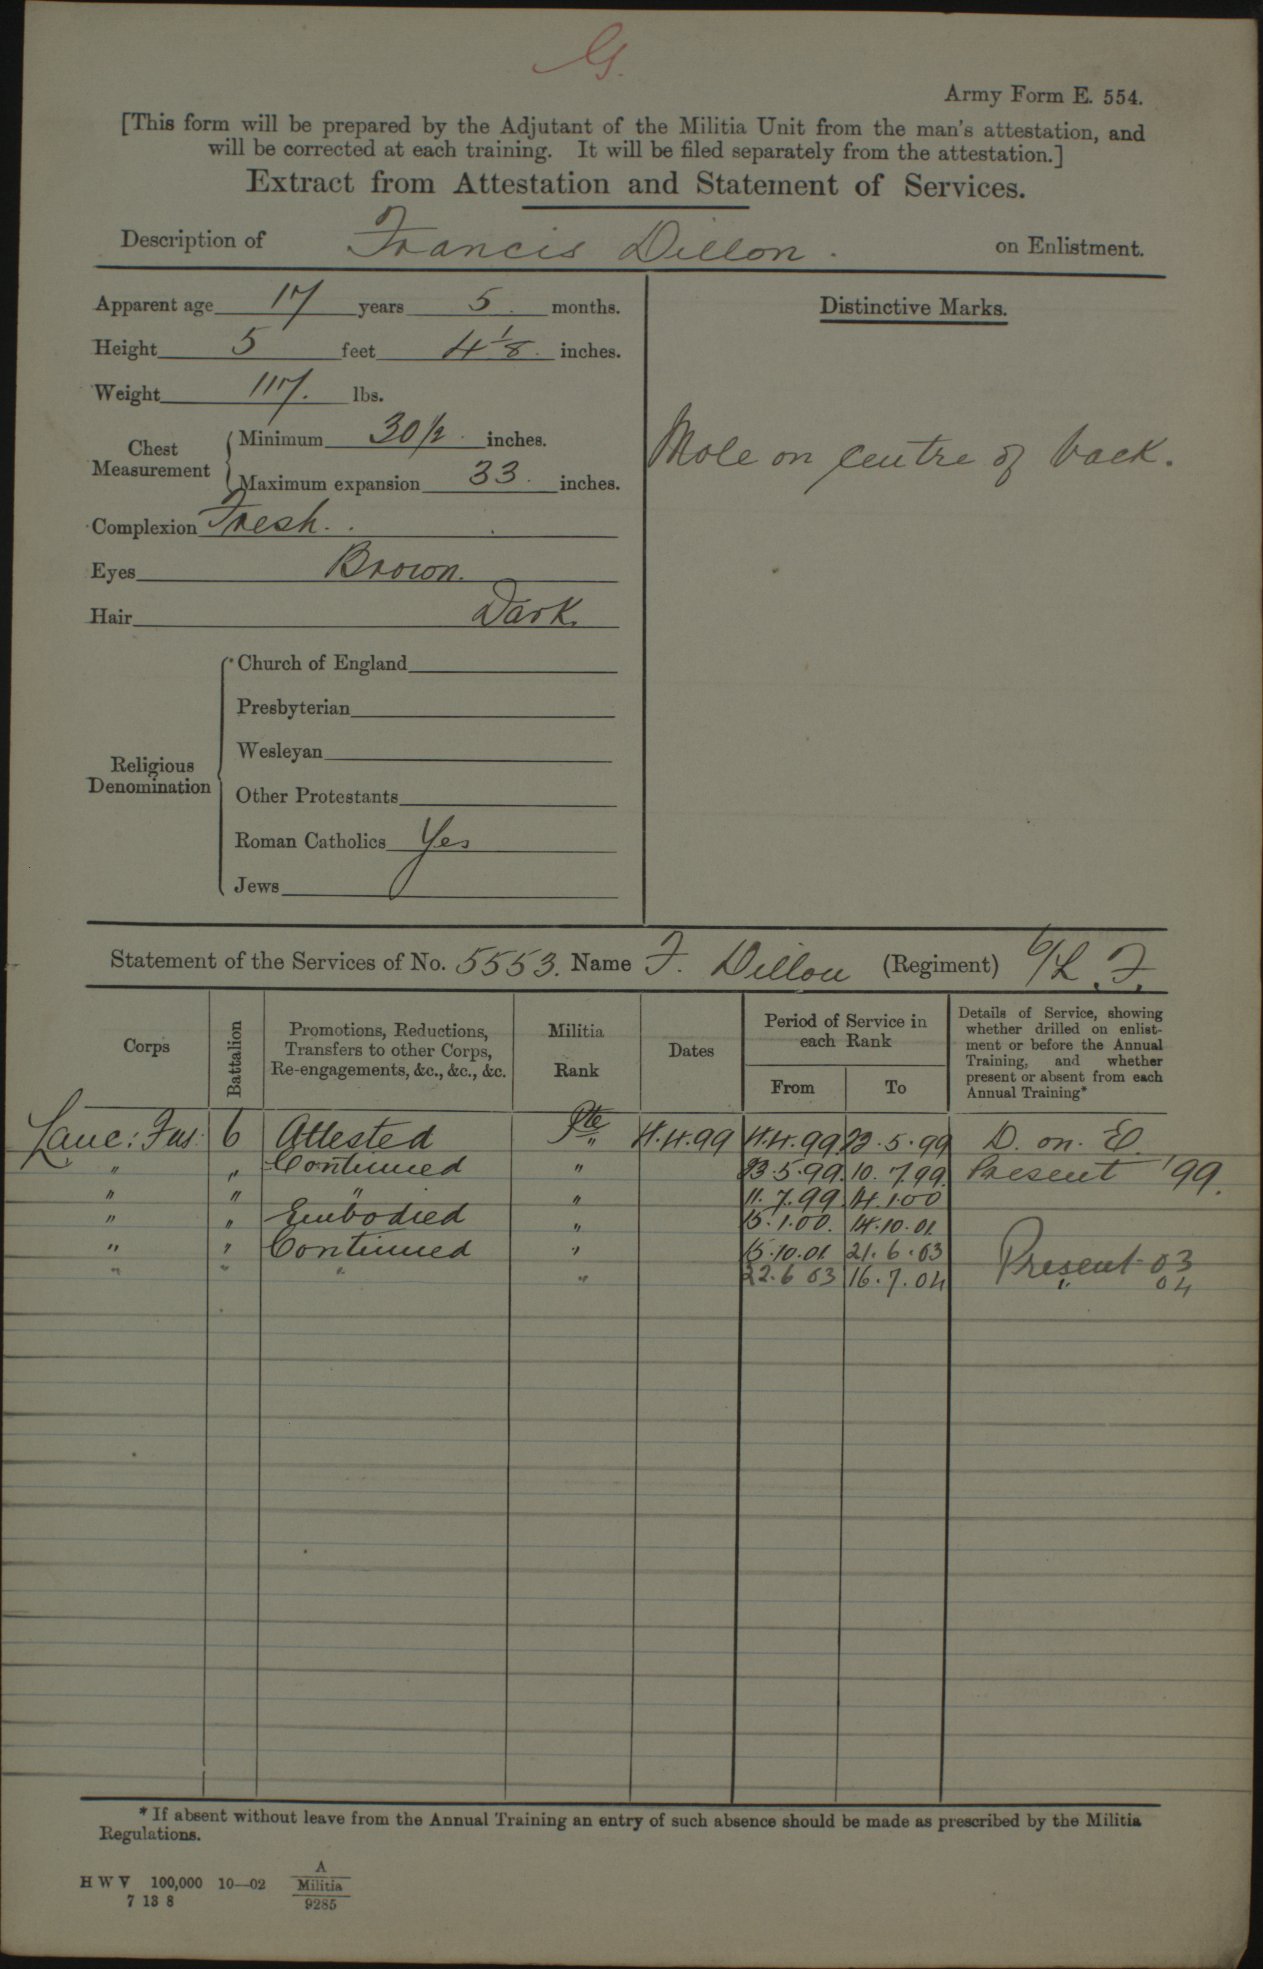 G.
Army Form E. 554.
[This form will be prepared by the Adjutant of the Militia Unit from the man's attestation, and
will be corrected at each training. It will be filed separately from the attestation.]
Extract from Attestation and Statement of Services.
Description of Francis Dillon. on Enlistment.
Apparent age 17 years 5 months.
Height 5 feet 4 1/8. inches.
Weight 117. lbs.
Chest Measurement
Minimum 30 1/2. inches.
Maximum expansion 33. inches.
Complexion Fresh.
Eyes Brown.
Hair Dark.
Religious Denomination
Church of England
Presbyterian
Wesleyan
Other Protestants
Roman Catholics Yes
Jews
Distinctive Marks.
Mole on centre of back.
Statement of the Services of No. 5553. Name F. Dillon (Regiment) 6/L. F.
Corps Battalion Promotions, Reductions, Transfers to other Corps, Re-engagements, &c., &c., &c. Militia Rank Dates Period of Service in each Rank From To Details of Service, showing whether drilled on enlistment or before the Annual Training, and whether present or absent from each Annual Training*
Lanc: Fus: 6 Attested Pte 4.4.99 4.4.99 22.5.99 D. on. E.
" " Continued " 23.5.99. 10.7.99. Present '99.
" " " " 11.7.99. 14.1.00
" " Embodied " 15.1.00. 14.10.01.
" " Continued " 15.10.01 21.6.03 Present 03
" " " " 22.6 03 16.7.04 " 04
* If absent without leave from the Annual Training an entry of such absence should be made as prescribed by the Militia
Regulations.
H W V 100,000 10—02 A
Militia
7 13 8 9285